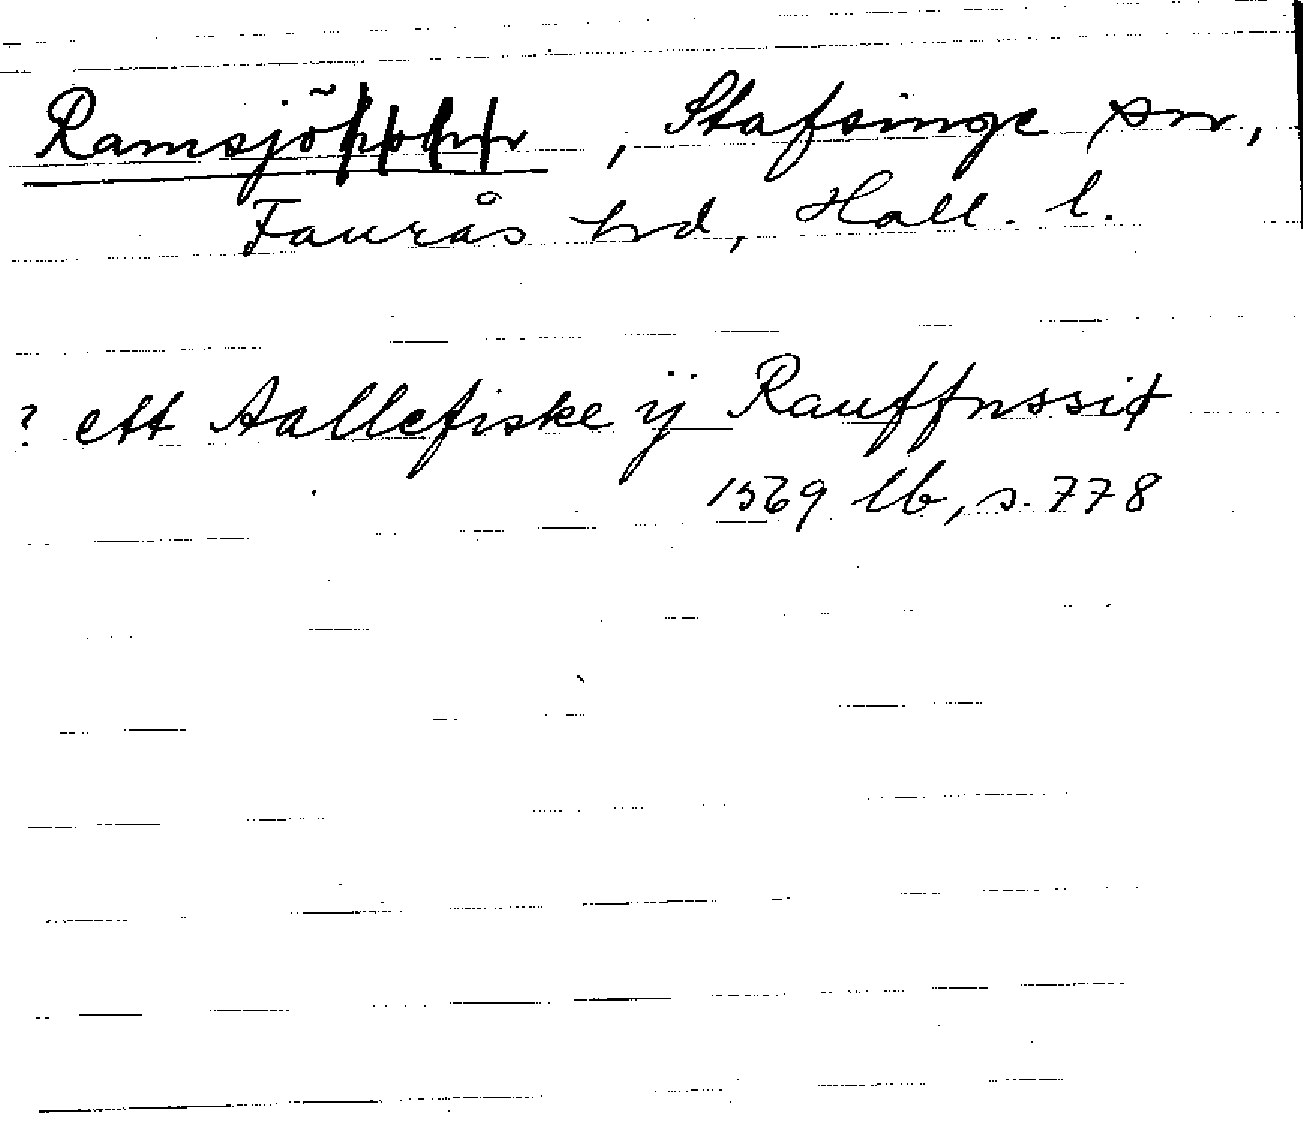 Ramsjö, Stafsinge sn,
Faurås hd, Hall. l.
? ett Aallefiske ÿ Rauffnssiø
1569 lb, s. 778